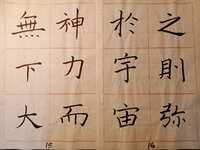 神力而
無下大
15
之則弥
於宇宙
16